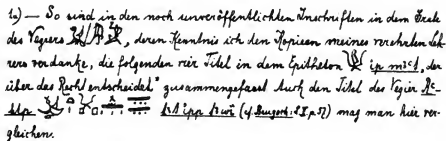 1.) — So sind in den noch unveröffentlichten Inschriften in dem Grabe
des Veziers, deren Kenntnis ich den Kopieen meines verehrten Leh-
rers verdanke, die folgenden vier Titel in dem Epitheton , der
über das Recht entscheidet" zusammengefasst. Auch den Titel des Vezier
(cf. Brugsch: p. 57) mag man hier ver-
gleichen.